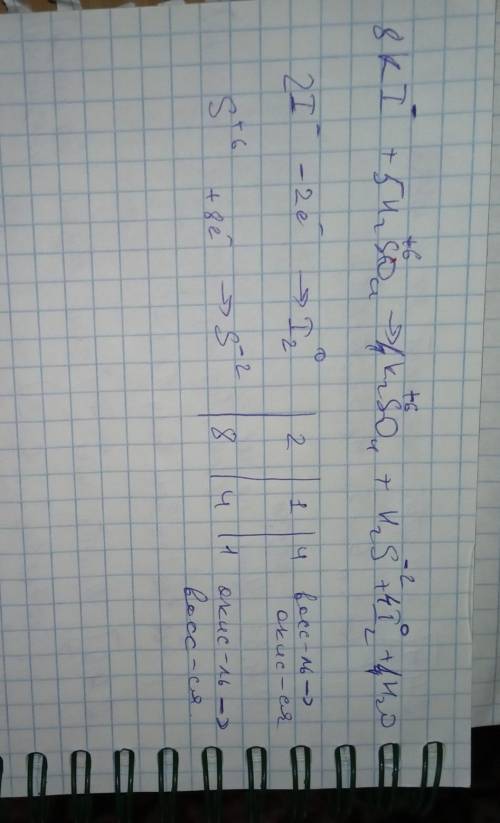 8KI⁻ + 5H₂S⁺⁶O₄ → 4K₂S⁺⁶O₄ + H₂S⁻² + 4I₂⁰ + 4H₂O
2I⁻ - 2e⁻ → I₂⁰ | 2 | 1 | 4 восс-ль → окис-ся
S⁺⁶ + 8e⁻ → S⁻² | 8 | 4 | 1 окис-ль → восс-ся